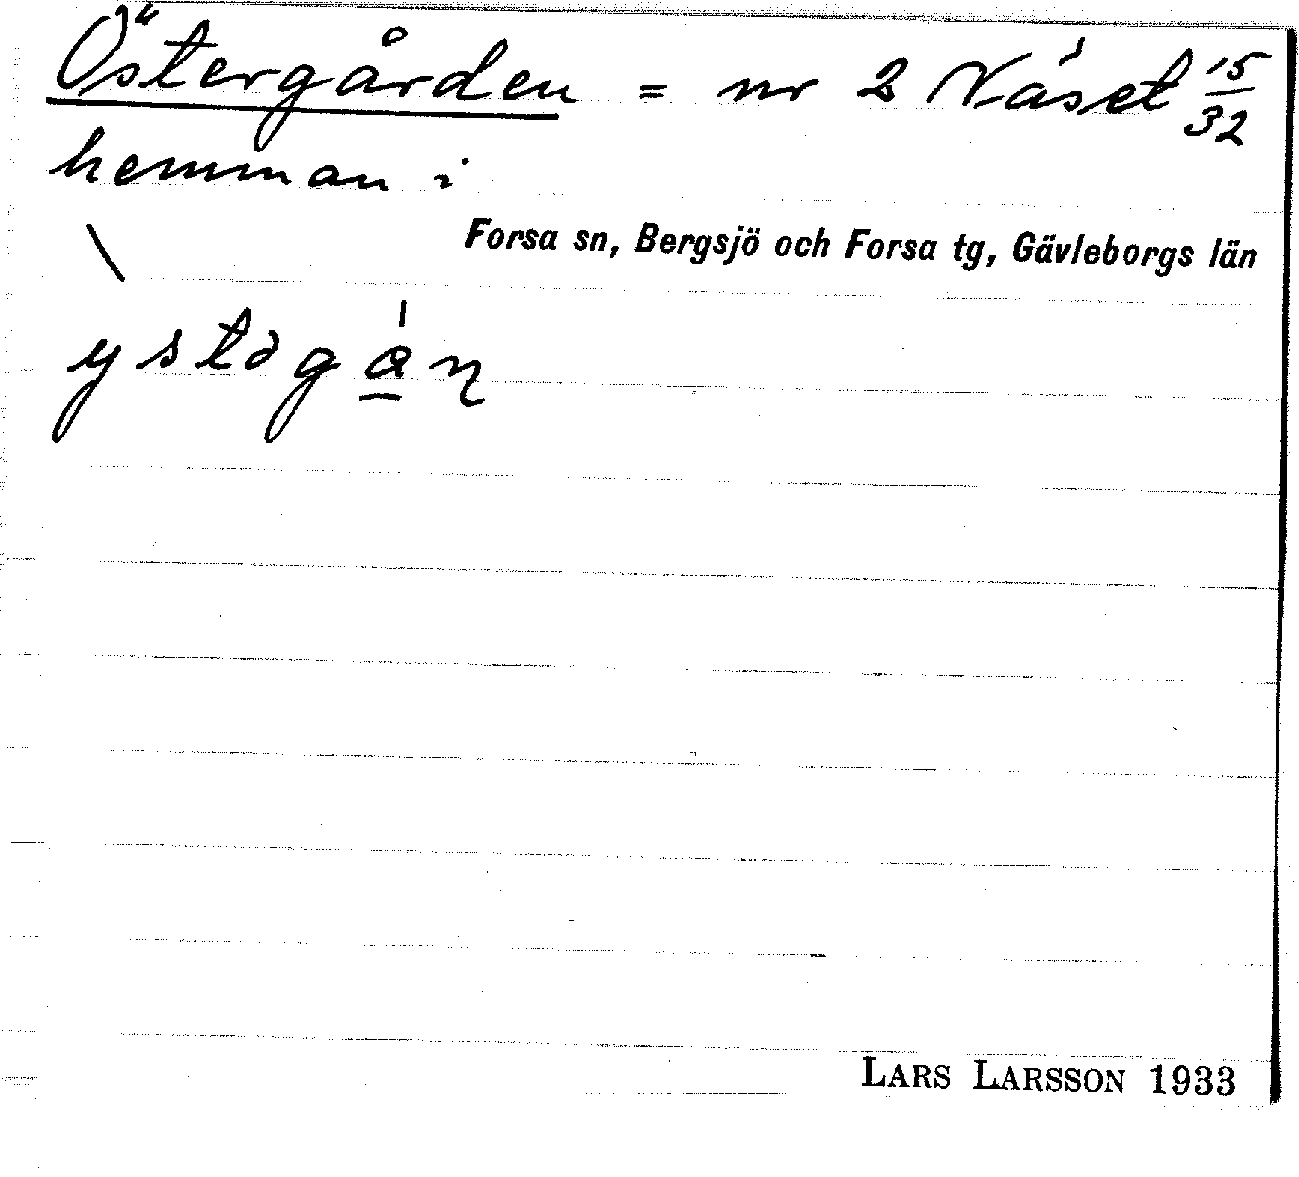 Östergården = nr 2 Näset 15/32
hemman i
Forsa sn, Bergsjö och Forsa tg, Gävleborgs län
ystəga̲n
LARS LARSSON 1933